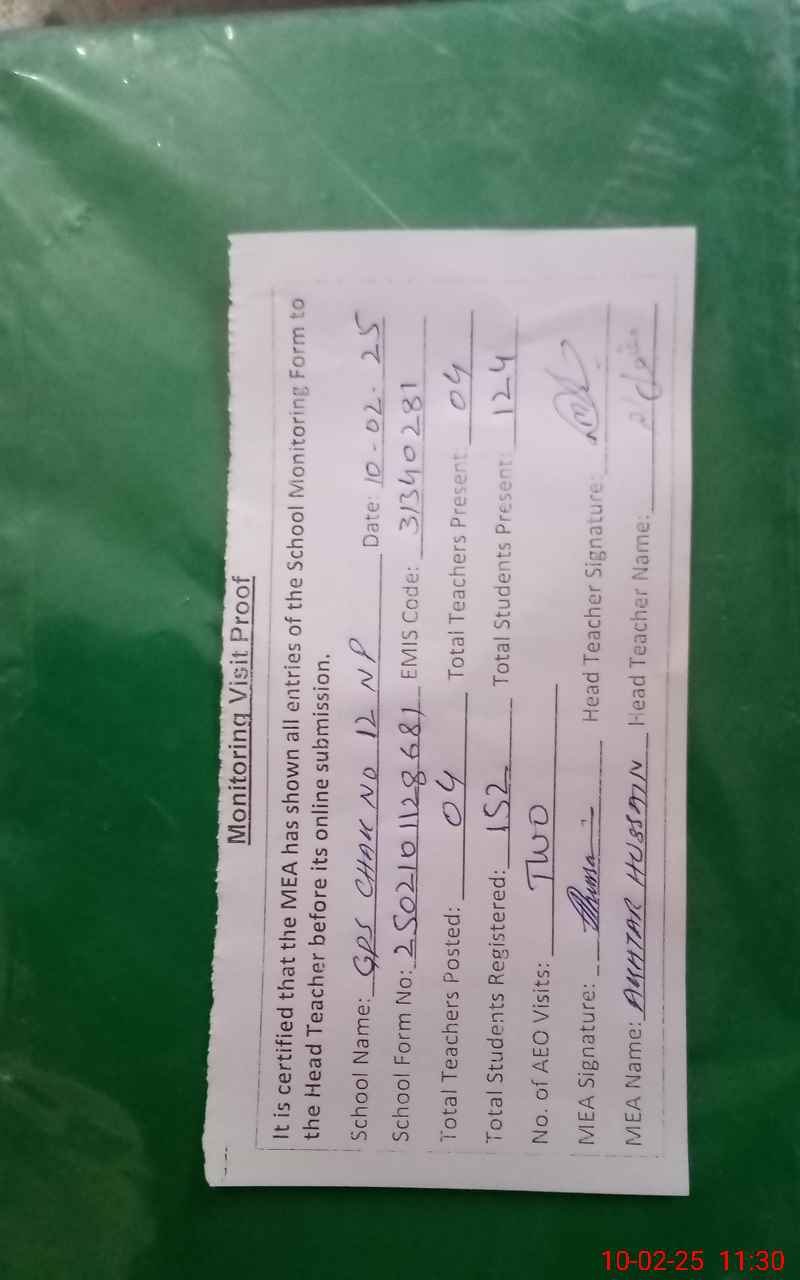 Monitoring Visit Proof
It is certified that the MEA has shown all entries of the School Monitoring Form to
the Head Teacher before its online submission.
School Name: GPS CHAK NO 12 NP Date: 10-02-25
School Form No: 2502101128681 EMIS Code: 31340281
Total Teachers Posted: 04 Total Teachers Present: 04
Total Students Registered: 152 Total Students Present: 124
No. of AEO Visits: TWO
MEA Signature: Head Teacher Signature:
MEA Name: AKHTAR HUSSAIN Head Teacher Name:
10-02-25 11:30